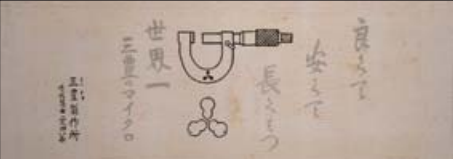 良くて
安くて
長くもつ
世界一
三豊のマイクロ
三豊製作所